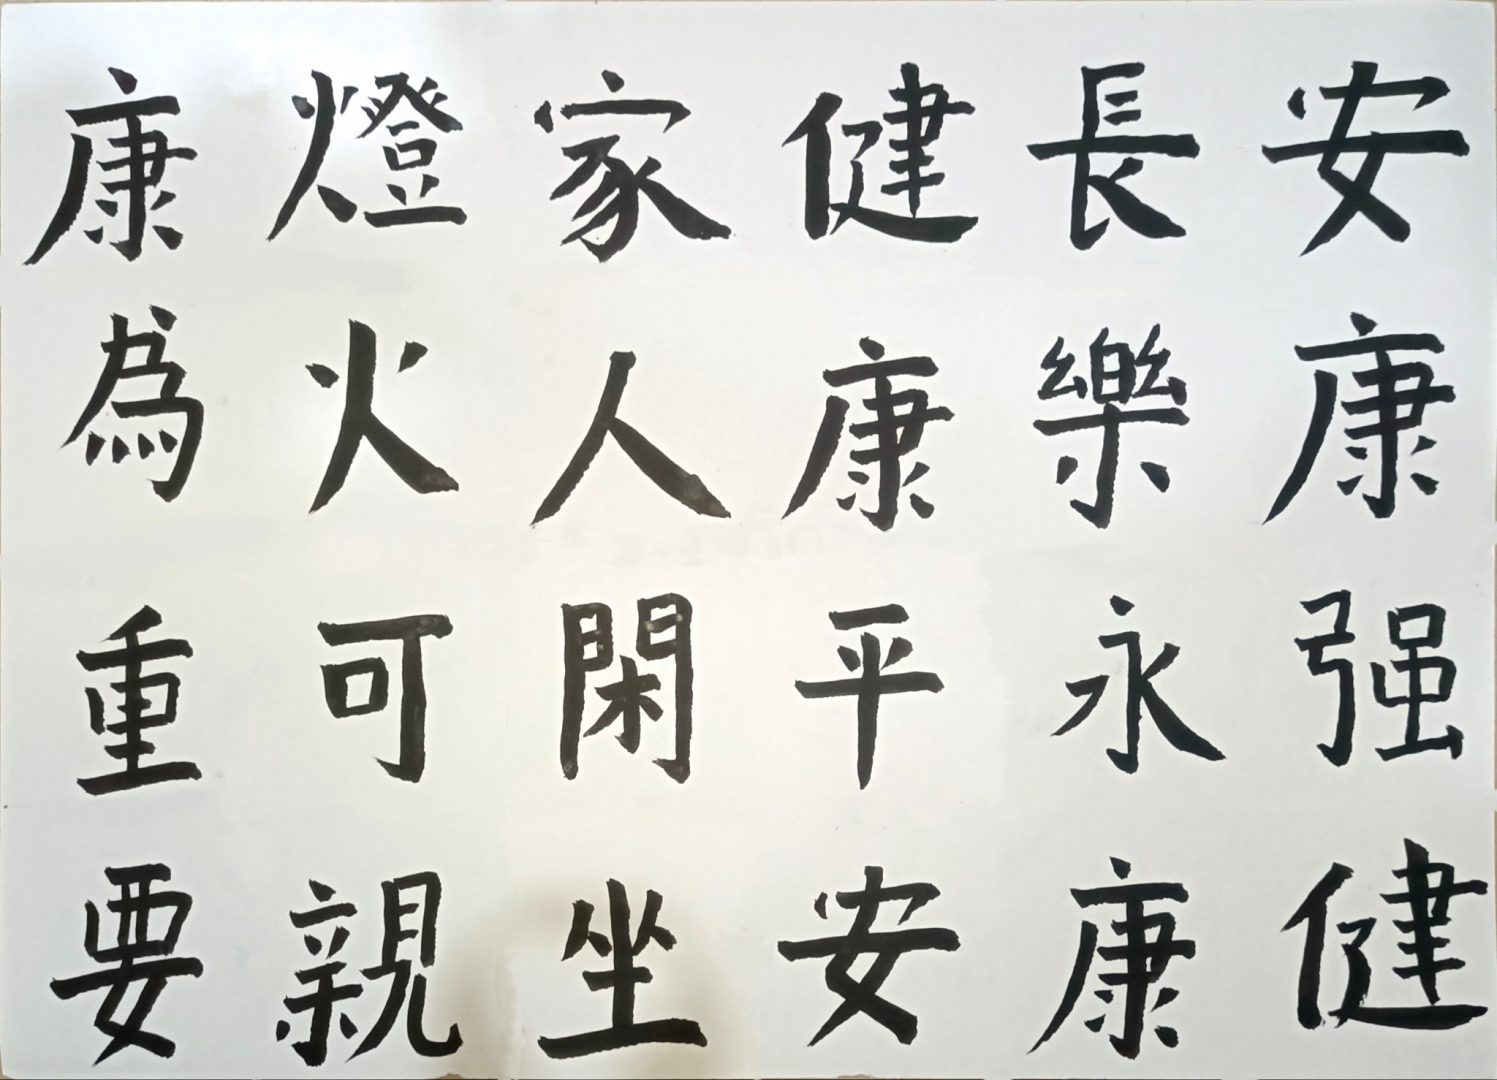 安康强健
長樂永康
健康平安
家人閑坐
燈火可親
康為重要